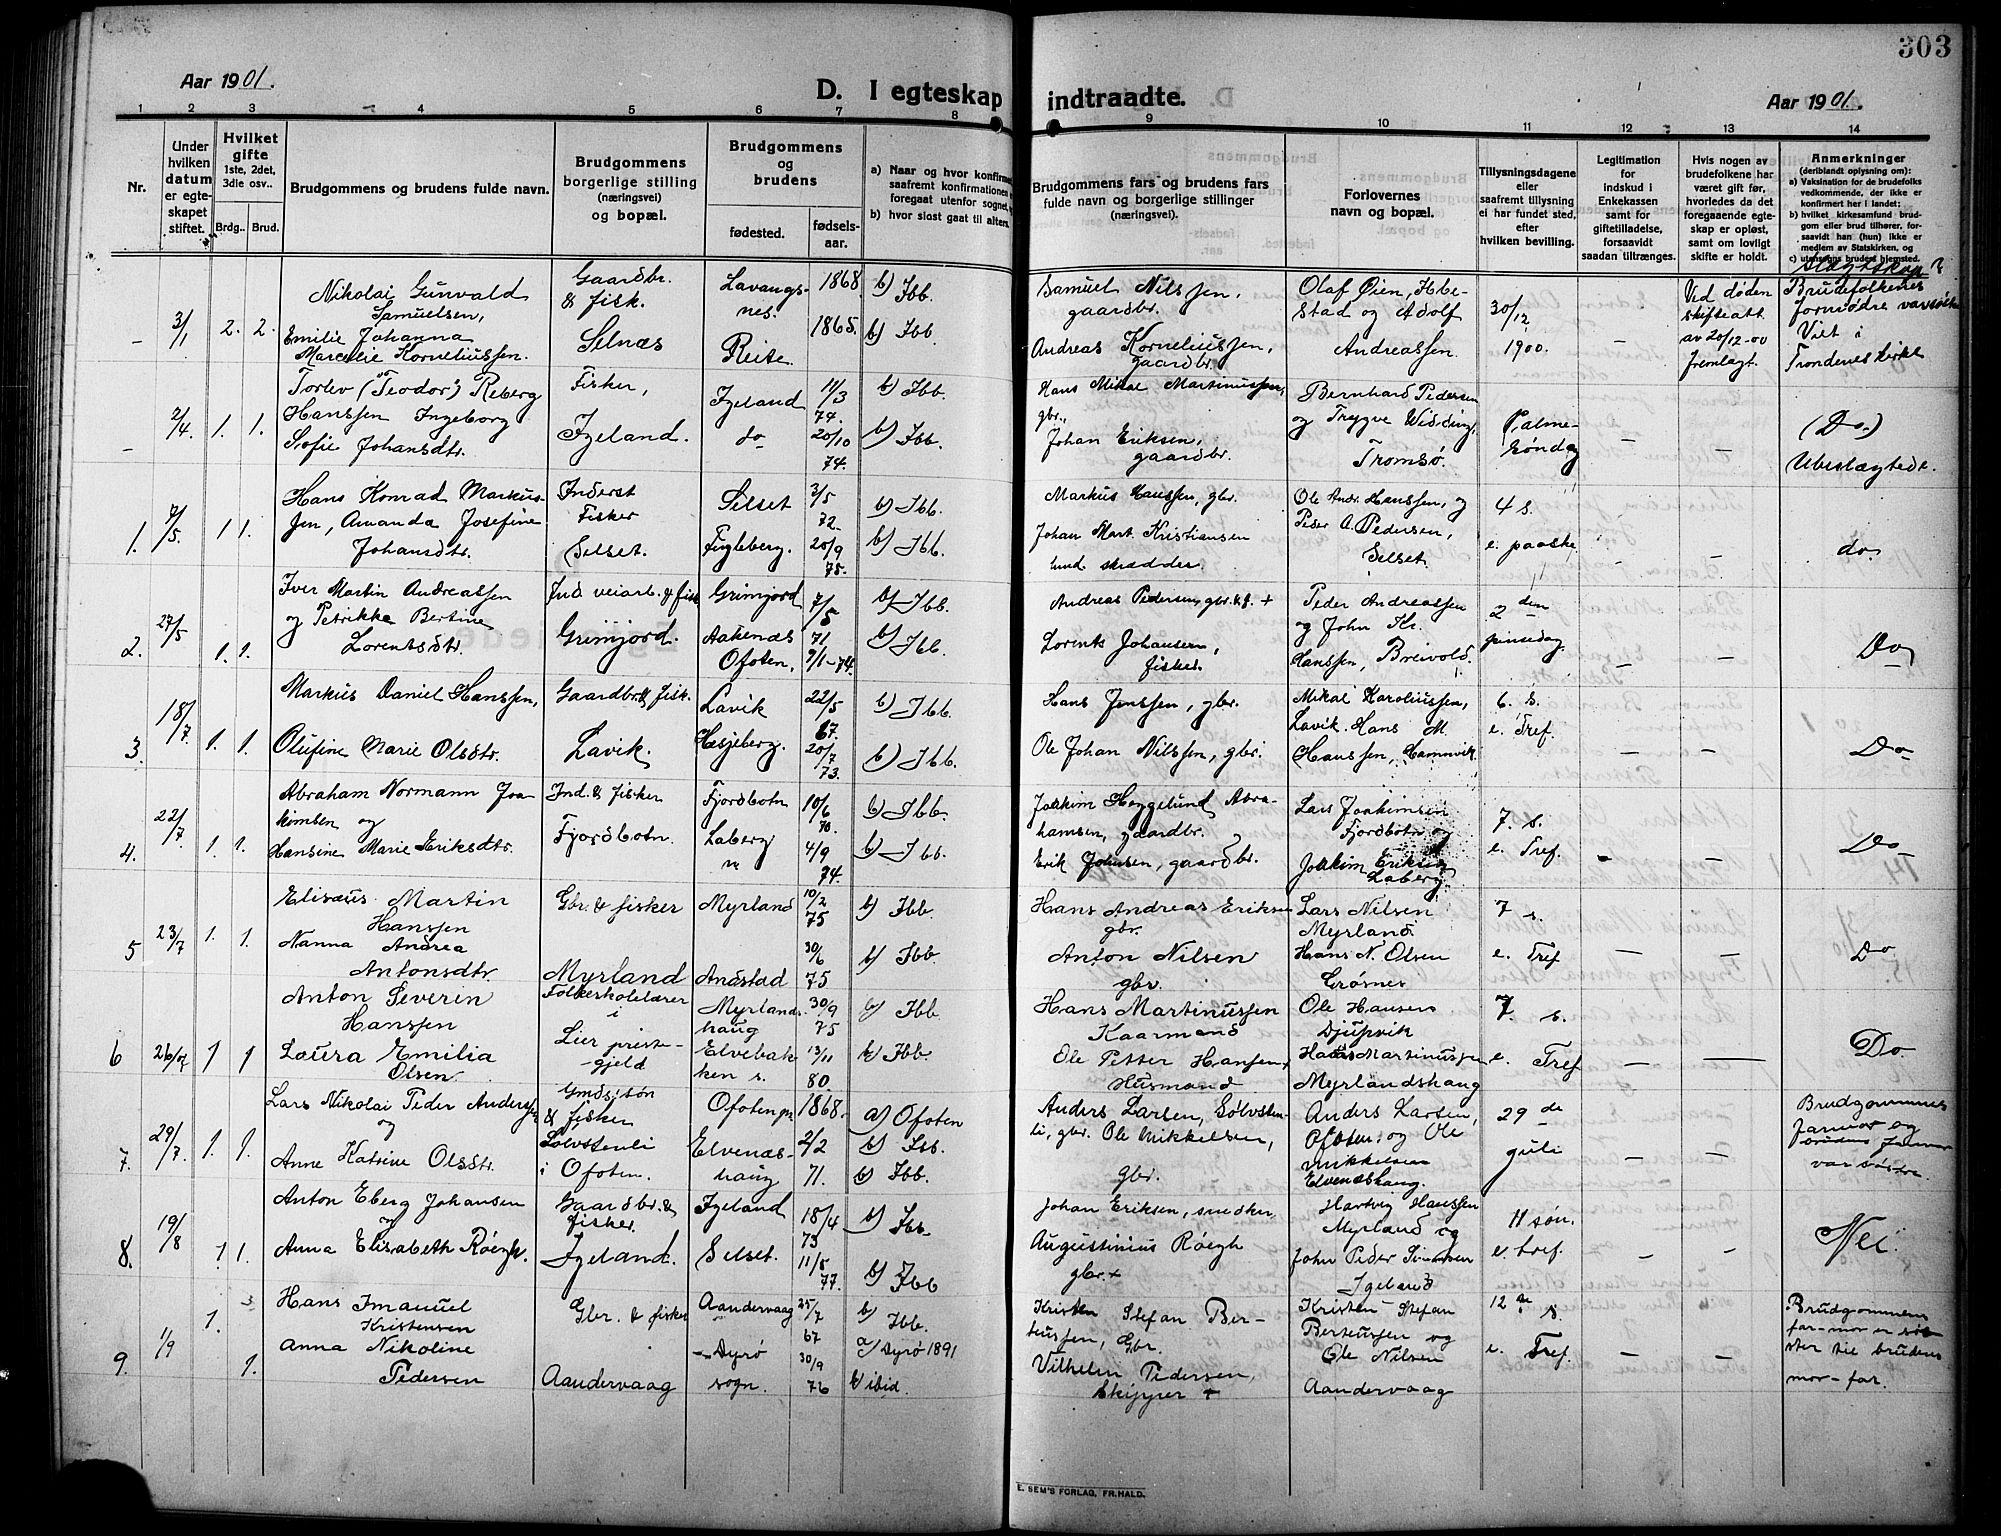 303
Aar 1901.
D. I egteskap indtraadte.
Aar 1901.
1 2 3 4 5 6 7 8 9 10 11 12 13 14
Nr.
Under hvilken datum er egteskapet stiftet.
Hvilket gifte 1ste, 2det, 3die osv..
Brdg.. Brud.
Brudgommens og brudens fulde navn.
Brudgommens borgerlige stilling (næringsvei) og bopæl.
Brudgommens og brudens
fødested. fødsels-aar.
a) Naar og hvor konfirm
saafremt konfirmationen
foregaat utenfor sognet,
b) hvor sidst gaat til alters.
Brudgommens fars og brudens fars fulde navn og borgerlige stillinger (næringsvei).
Forlovernes navn og bopæl.
Tillysningsdagene eller saafremt tillysning ei har fundet sted, efter hvilken bevilling.
Legitimation for indskud i Enkekassen samt for giftetilladelse, forsaavidt saadan tiltrænges.
Hvis nogen av brudefolkene har været gift før, hvorledes da det foregaaende egteskap er opløst, samt om lovligt skifte er holdt.
Anmerkninger (deriblandt oplysning om): a) Vaksination for de brudefolks vedkommende, der ikke er konfirmert her i landet: b) hvilket kirkesamfund brudgom eller brud tilhører, forsaavidt han (hun) ikke er medlem av Statskirken, og c) utensogns bruders hjemsted.
Slægtskap?
– 3/1 2. 2. Nikolai Gunvald Samuelsen, Emilie Johanna Marcelie Korneliussen.
Gaardbr. & fisk. Selnæs
Lavangsnes. 1868. b) Ibb.
Reite 1865. b) Ibb
Samuel Nilssen, gaardbr.
Andreas Korneliussen, gaardbr.
Olaf Øien, Ibbestad og Adolf Andreassen.
30/12 1900.
Ved døden skifteatt. av 20/12-00 fremlagt.
Brudefolkenes formødre var søstre
Viet i Trondenes kirke
– 2/4 1. 1. Torlev (Teodor?) Reberg Hanssen Ingeborg Sofie Johansdtr.
Fisker, Igeland.
Igeland 11/3 74. b) Ibb.
do 20/10 74. b) Ibb.
Hans Mikal Martinussen, gbr.,
Johan Eriksen, gaardbr.
Bernhard Pedersen og Trygve Widding, Tromsø.
Palmesøndag
– –
(Do.)
Ubeslægtede.
1. 7/5. 1 1. Hans Konrad Markussen, Amanda Josefine Johansdtr.
Inderst Fisker Selset.
Selset 3/5 72. b) Ibb.
Fugleberg. 20/9 75. b) Ibb
Markus Hanssen, gbr.
Johan Mart. Kristiansen
skrædder
Ole Andr. Hanssen, og Peder A. Pedersen, Selset.
4 s. e. paaske
– –
do
2. 27/5 1. 1. Iver Martin Andreassen og Petrikke Bertine Lorentsdtr.
Ind veiarb. & fisk Grimjord.
Grimjord 7/5 71 b) Ibb.
Aakenæs Ofoten. 9/1-74. b) Ibb.
Andreas Pedersen, gbr. & f. +
Lorents Johansen, fisker.
Peder Andreassen og John Kr. Hanssen, Breivold.
2den pinsedag
– –
Do
3 18/7. 1. 1. Markus Daniel Hanssen, Olufine Marie Olsdtr.
Gaardbr. & fisk. Lavik.
Lavik 22/5 67. b) Ibb
Hesjeberg. 20/7 73. b) Ibb.
Hans Jenssen, gbr.
Ole Johan Nilssen, gbr.
Mikal Karoliussen, Lavik. Hans M. Hanssen, Hamnvik.
6. s. e. Tref.
– –
Do
4. 22/7 1. 1. Abraham Normann Joakimsen og Hansine Marie Eriksdtr.
Ind. & fisker Fjordbotn.
Fjordbotn 10/6 70. b) Ibb.
Laberg 4/9 74. b) Ibb.
Joakim Heggelund Abrahamsen, gaardbr.
Erik Johnsen, gaardbr.
Lars Joakimsen Fjordbotn og Joakim Eriksen Laberg.
7. s. e. Tref.
– –
Do
5 23/7 1. 1. Elisæus Martin Hanssen
Nanna Andrea Antonsdtr.
Gbr. & fisker Myrland
Myrland 10/2 75 b) Ibb.
Andstad 30/6 75 b) Ibb.
Hans Andreas Eriksen gbr.
Anton Nilsen gbr.
Lars Nilsen Myrland.
Hans N. Olsen Grøsnes
7 s. e. Tref
– –
Do
6 26/07 1 1 Anton Severin Hanssen
Laura Emilia Olsen.
Folkeskolelærer i Lier prestegjeld
Myrlandshaug 30/9 75 b) Ibb
Elvebakken s. 13/11 80. b) Ibb.
Hans Martinussen Kaarmand
Ole Petter Hansen, Husmand
Ole Hansen Djupvik
Hans Martinussen Myrlandshaug
7. s. e. Tref
– –
Do
7. 29/7. 1. 1. Lars Nikolai Peder Anderssen og Anne Katrine Olsdtr.
Gmdssøn & fisker Sølvstenli i Ofoten.
Ofoten 1868. a) Ofoten
b) Ibb.
Elvenæshaug 2/2 71. b) Ibb.
Anders Larsen, Sølvstenli, gbr. Ole Mikkelsen, gbr.
Anders Larsen, Ofoten, og Ole Mikkelsen Elvenæshaug.
29de juli
– –
Brudgommens farmor og brudens farmor var søstre
8. 19/8 1. 1. Anton Eberg Johansen og Anna Elisabeth Røegh.
Gaardbr. & fisker. Igeland.
Igeland 18/4 73 b) Ibb.
Selset. 11/5 77. b) Ibb
Johan Eriksen, snedker,
Augustinius Røegh gbr. +
Hartvig Hanssen Myrland og John Peder Simonsen Igeland
11 søn. e. tref.
– –
Nei.
9. 1/9 1. 1. Hans Imanuel Kristensen
Anna Nikoline Pedersen
Gbr. & fisker Aandervaag
Aandervaag 25/7 67 b) Ibb.
Dyrø sogn. 30/9 76 a) Dyrø 1891 b) ibid.
Kristen Stefan Berteussen, Gbr.
Vilhelm Pedersen, Skipper +
Kristen Stefan Berteussen og Ole Nilsen Aandervaag
12te s. e. Tref.
– –
Brudgommens far-mor er søster til brudens mor-far.
E. SEM'S FORLAG, FR.HALD.